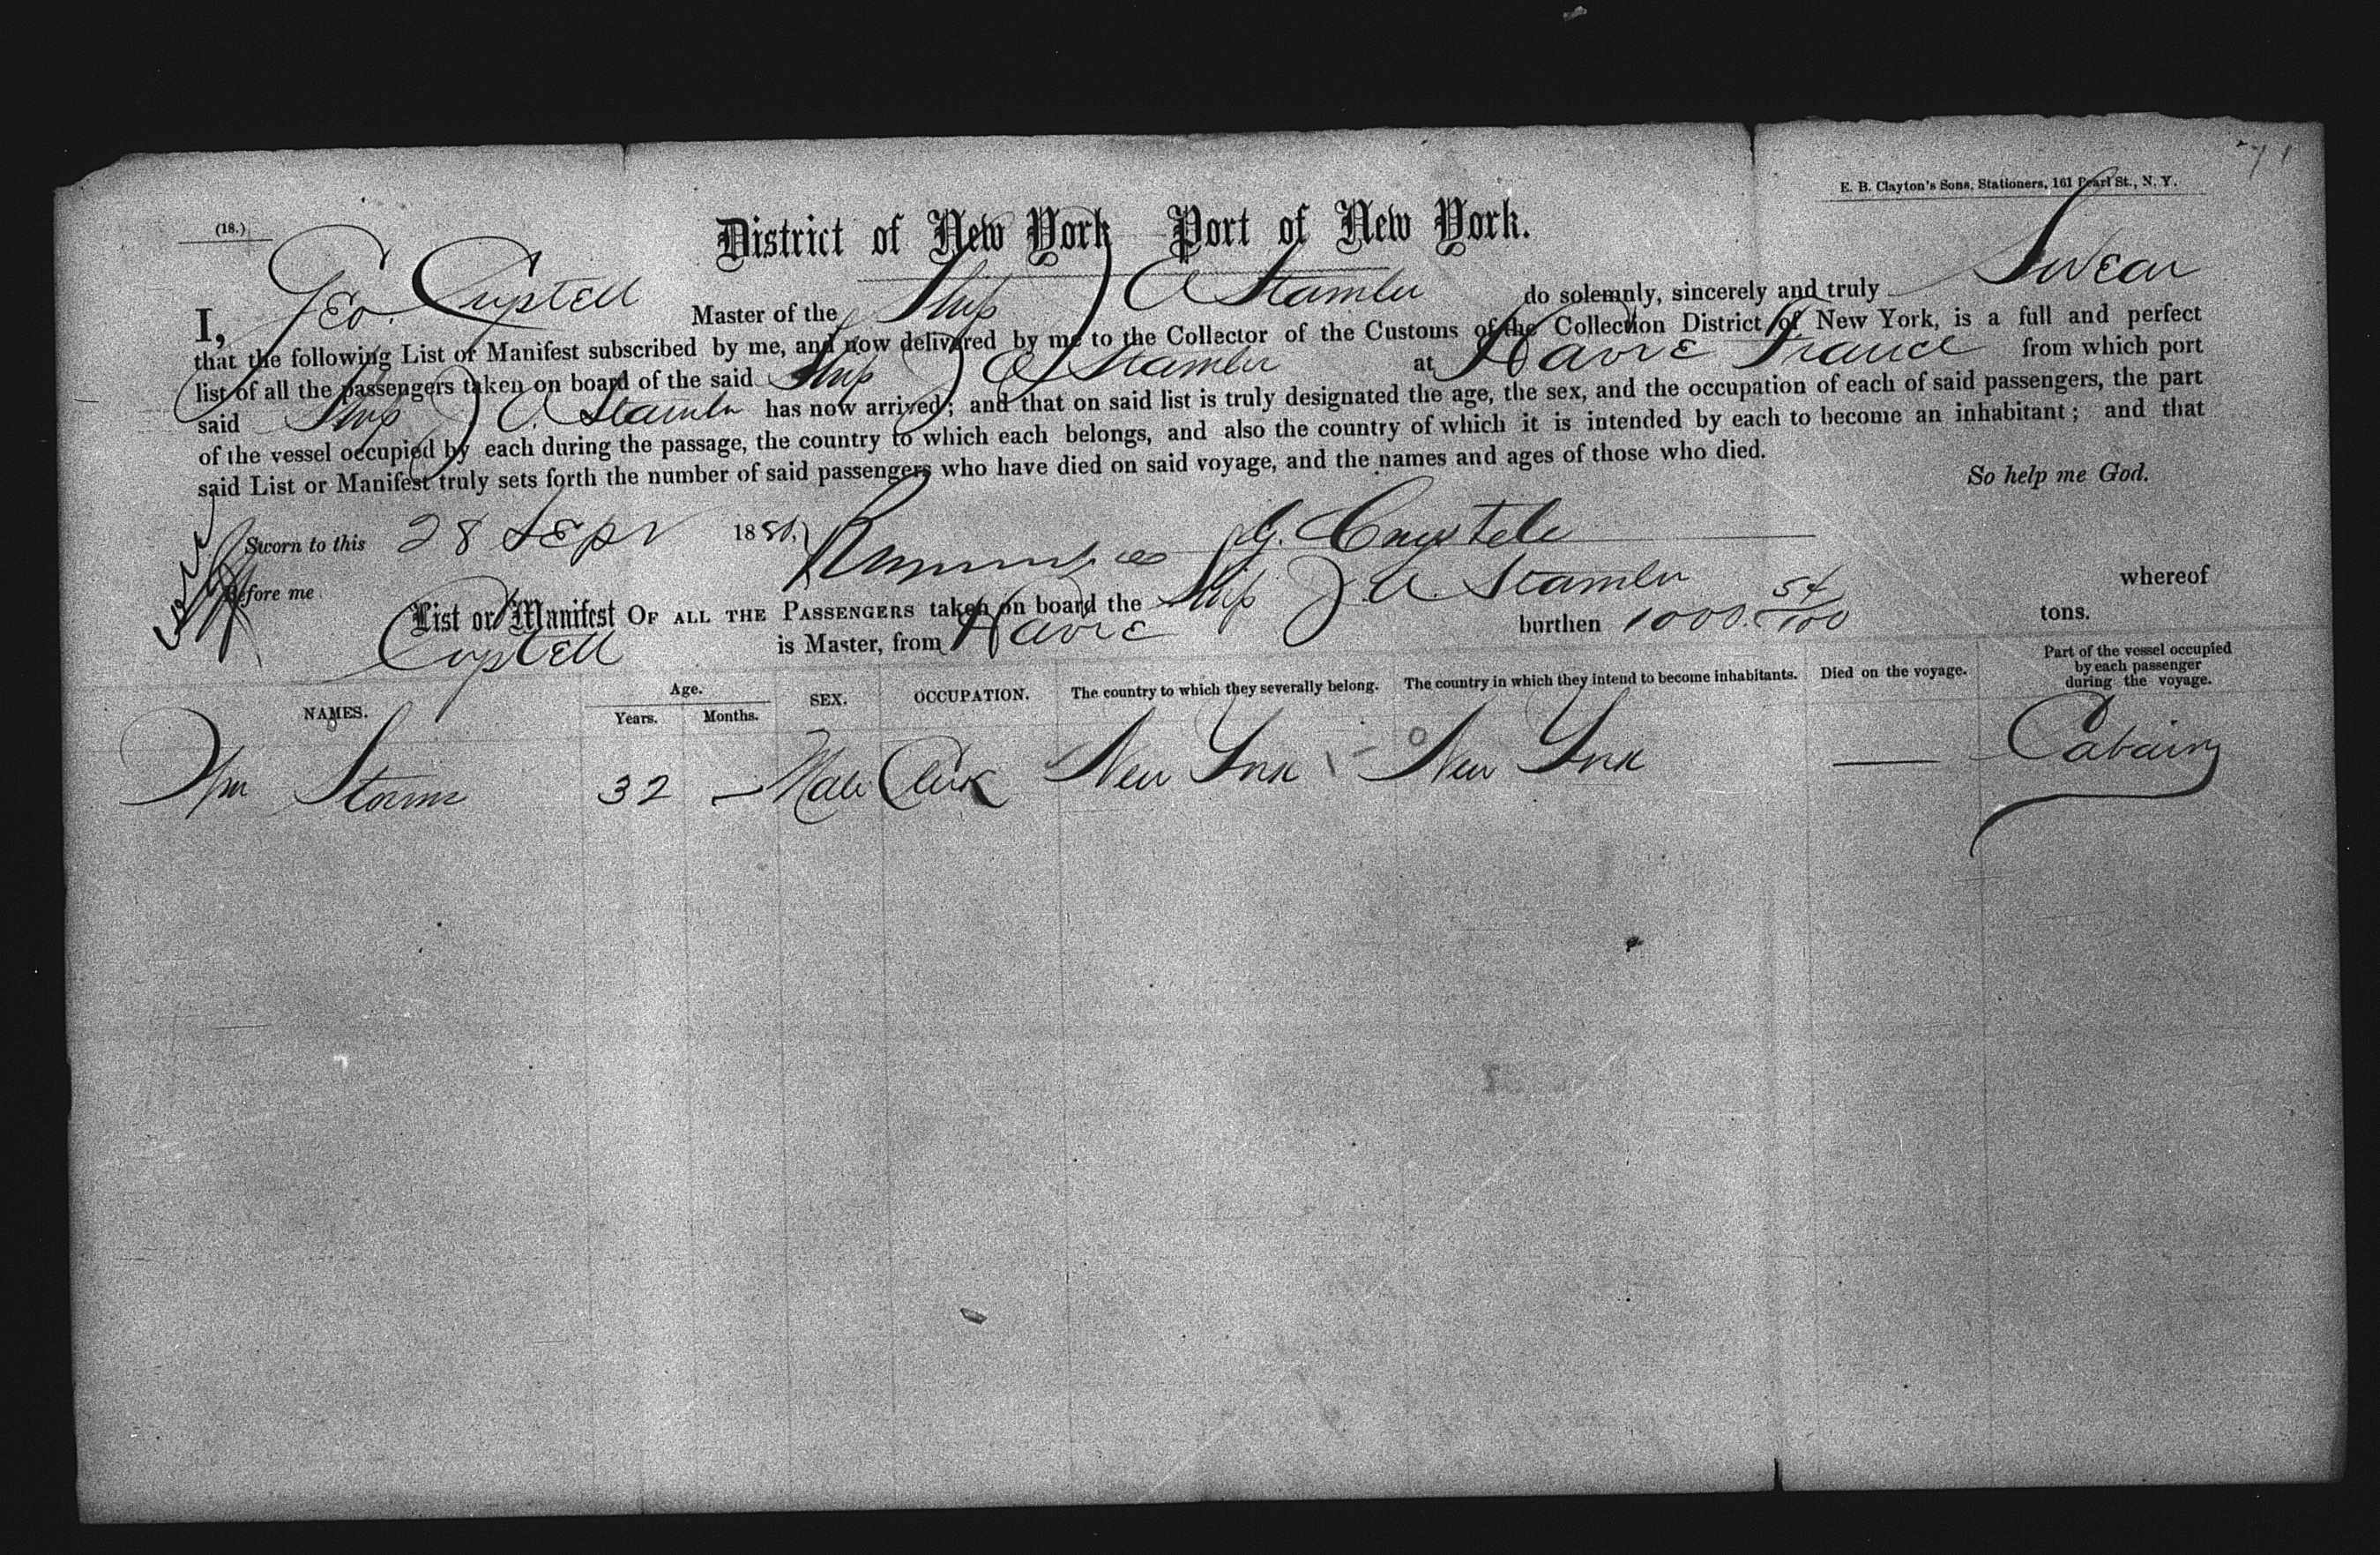 E. B. Clayton's Sons, Stationers, 161 Pearl St., N. Y.
(18.)
District of New York Port of New York.
I, Geo. Master of the Ship J A Stamler do solemnly, sincerely and truly Swear
that the following List or Manifest subscribed by me, and now delivered by me to the Collector of the Customs of the Collection District of New York, is a full and perfect
list of all the passengers taken on board of the said Ship J A Stamler at Havre France from which port
said Ship J A. Stamler has now arrived; and that on said list is truly designated the age, the sex, and the occupation of each of said passengers, the part
of the vessel occupied by each during the passage, the country to which each belongs, and also the country of which it is intended by each to become an inhabitant; and that
said List or Manifest truly sets forth the number of said passengers who have died on said voyage, and the names and ages of those who died.
So help me God.
Sworn to this 28 Sept 1880, G.
Before me
List or Manifest OF ALL THE PASSENGERS taken on board the Ship J. A. Stamler whereof
is Master, from Havre burthen 1000. 54/100 tons.
NAMES.
Age.
Years. Months.
SEX.
OCCUPATION.
The country to which they severally belong.
The country in which they intend to become inhabitants.
Died on the voyage.
Part of the vessel occupied
by each passenger
during the voyage.
Wm Storms 32 — Male Clerk New York New York — Cabin